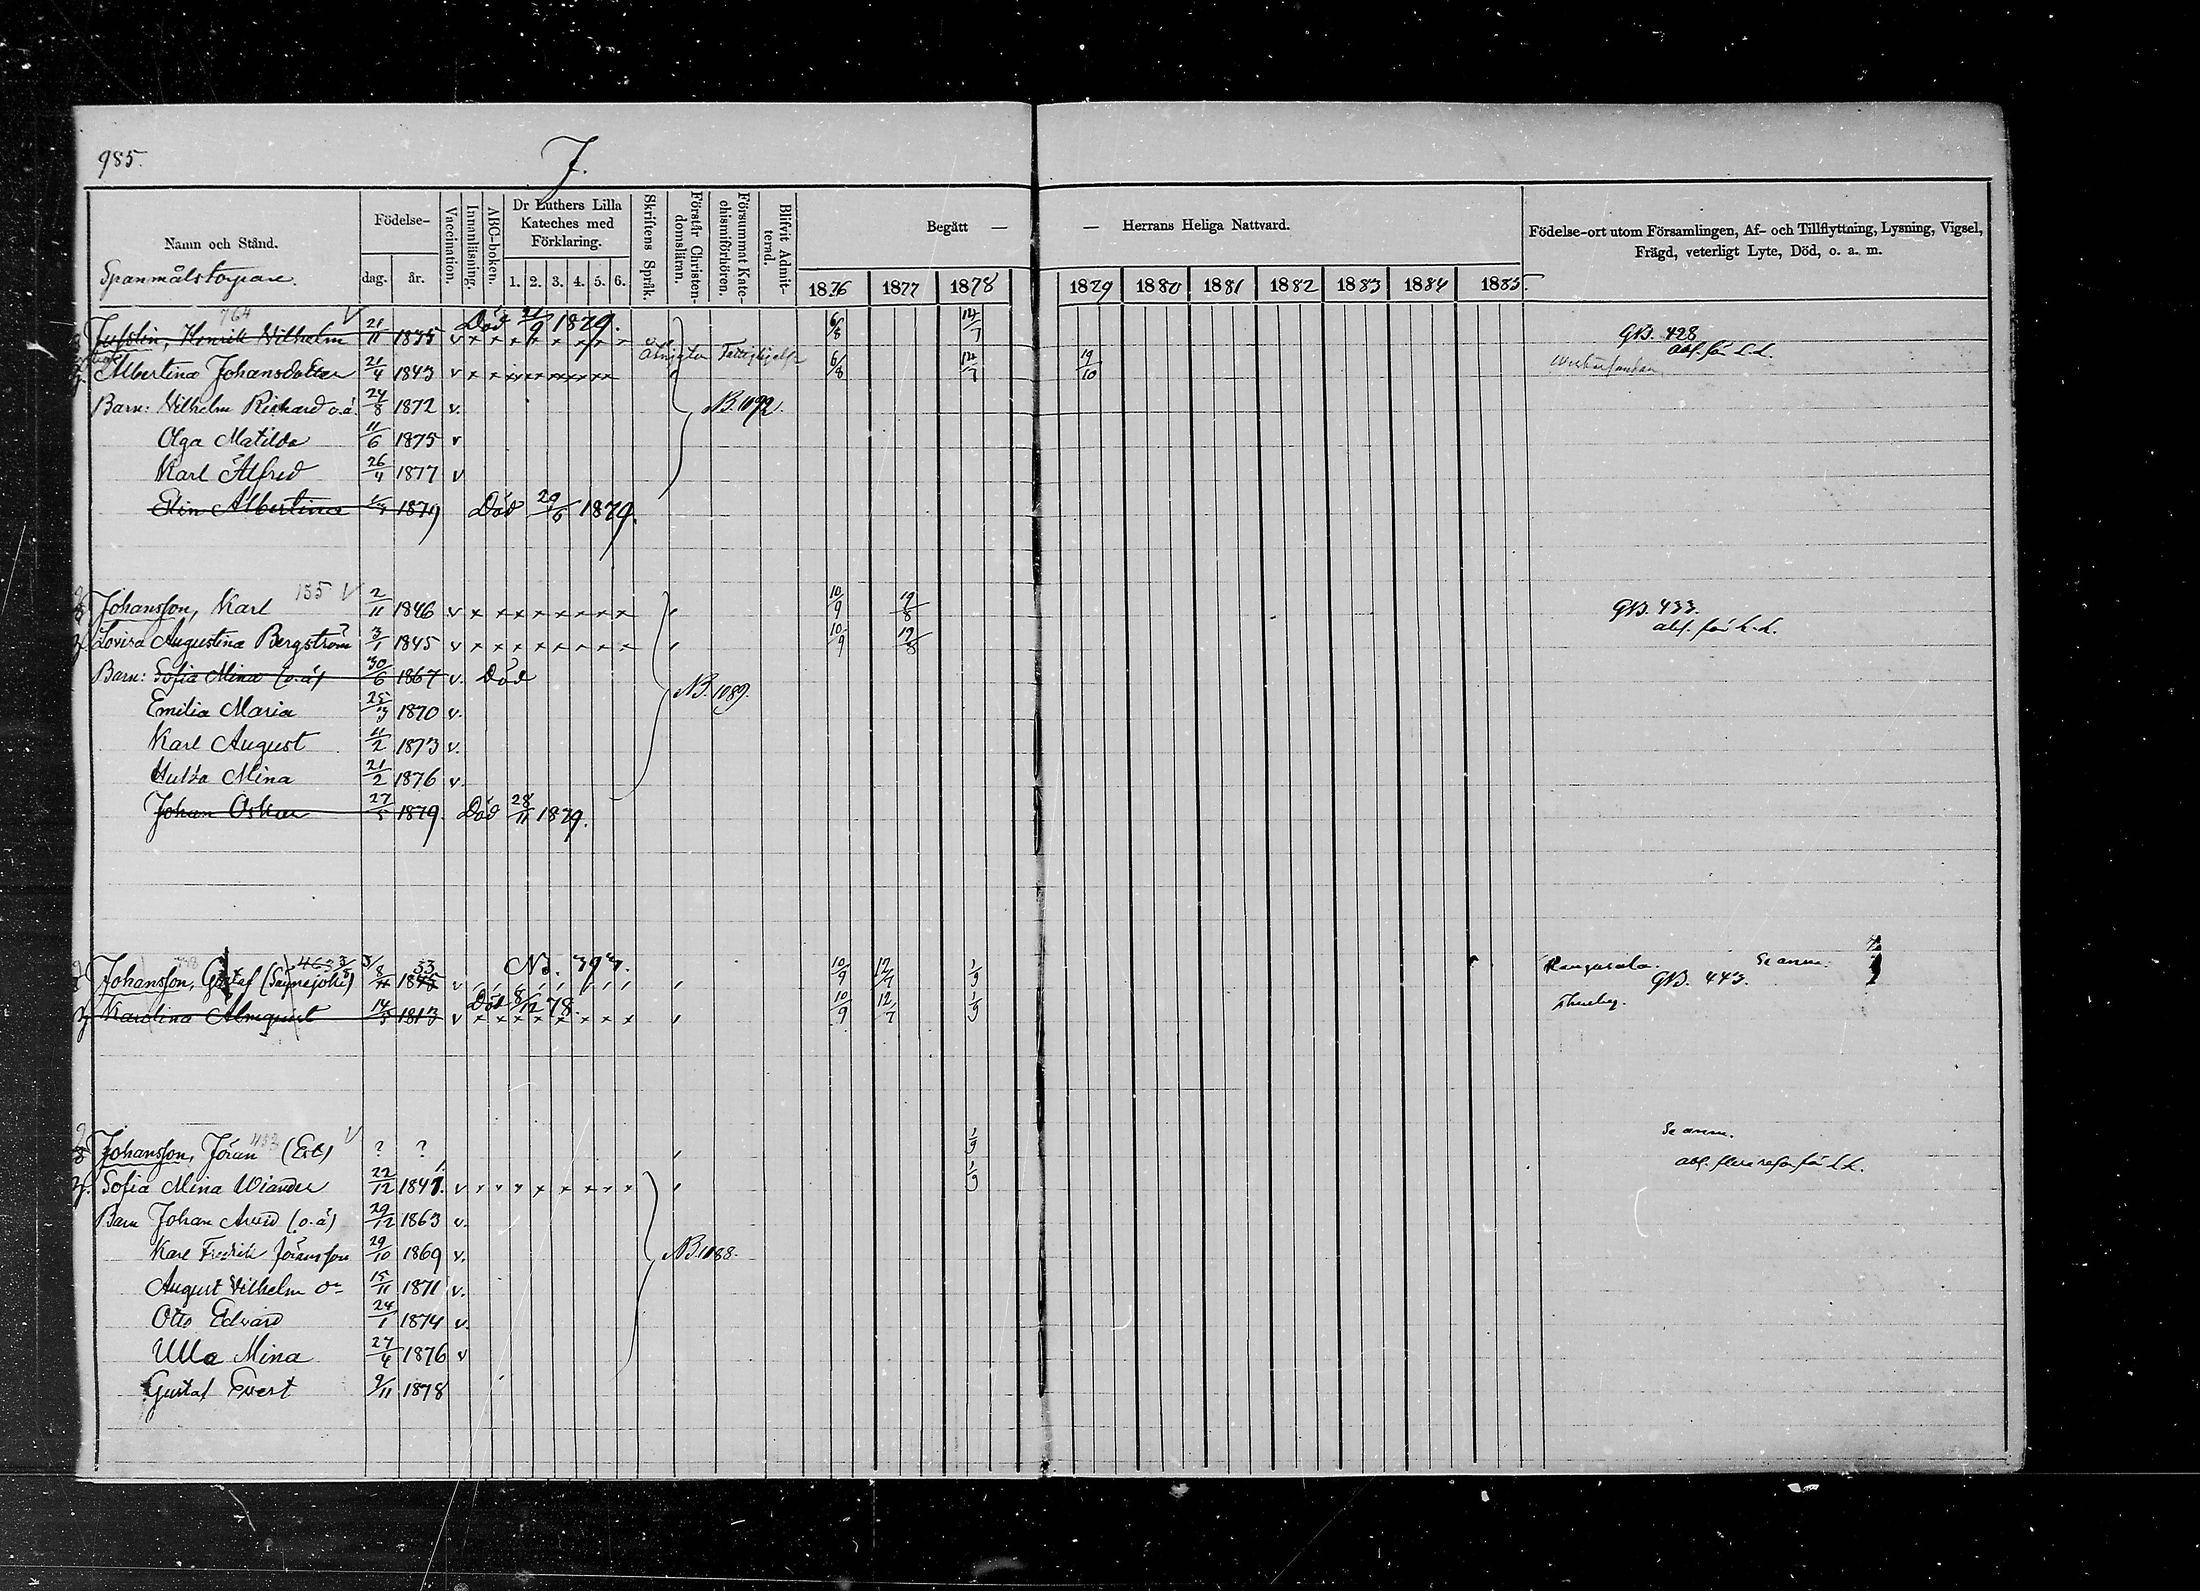 985.
J.
Namn och Stånd.
Spanmålstorpare.
Födelse-
dag. år.
Vaccination.
Innanläsning.
ABC-boken.
Dr Luthers Lilla Kateches med Förklaring.
1. 2. 3. 4. 5. 6.
Skriftens Språk.
Förstår Christendomsläran.
Försummat Katechismiförhören.
Blifvit Admitterad.
Begått — — Herrans Heliga Nattvard.
1876 1877 1878 1879 1880 1881 1882 1883 1884 1885.
Födelse-ort utom Församlingen, Af- och Tillflyttning, Lysning, Vigsel,
Frägd, veterligt Lyte, Död, o. a. m.
764
Henrik Wilhelm 21/11 1835 v Död 21/9 1879. 6/8 14/7 GB. 428
abs. för L.L.
Albertina Johansdotter 21/4 1843 v 6/8 14/7 19/10
Barn: Vilhelm Richard o.ä 24/8 1872 v. NB. 1092.
Olga Matilda 11/6 1875 v
Karl Alfred 26/4 1877 v
Elin Albertina 1879 Död 29/6 1879.
155 v
Johansson, Karl 2/11 1846 v x x x x x x x x 10/9 19/8 GB. 433.
Lovisa Augustina Bergström 3/1 1845 v x x x x x x x x 10/9 19/8 abs. för L.L.
Barn: Sofia Mina (o.ä) 30/6 1867 v. Död
Emilia Maria 25/3 1870 v. NB. 1089.
Karl August 11/2 1873 v.
Hulda Mina 21/2 1876 v.
Johan Oskar 27/5 1879. Död 28/11 1879.
Johansson, Gustaf 1845 33 v 10/9 12/7 1/9 Se anm.
GB. 443.
Karolina Almquist 14/3 1813 v Död 8/12 78. 10/9 12/7 1/9
Johansson, Jöran ? ? 1/9 Se anm.
Sofia Mina Wiander 22/12 1841. v 1/9
Barn Johan Arvid (o.ä) 29/12 1863 v.
Karl Fredrik Jöransson 29/10 1869 v. NB. 1088.
August Vilhelm 15/11 1871 v.
Otto Edvard 24/1 1874 v.
Ulla Mina 27/4 1876 v
Gustaf Evert 9/11 1878